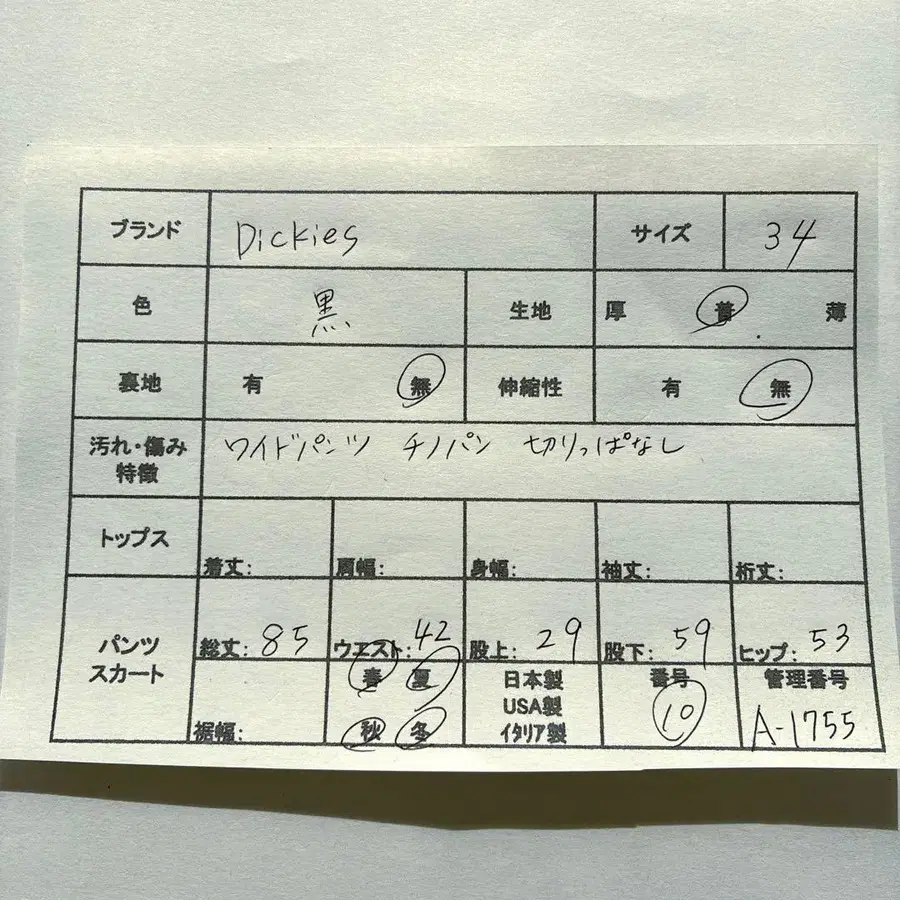 ブランド Dickies サイズ 34
色 黒 生地 厚 普 薄
裏地 有 無 伸縮性 有 無
汚れ・傷み
特徴
ワイドパンツ チノパン 切りっぱなし
トップス 着丈: 肩幅: 身幅: 袖丈: 裄丈:
パンツ
スカート
総丈: 85 ウエスト: 42 股上: 29 股下: 59 ヒップ: 53
裾幅:
春 夏
秋 冬
日本製
USA製
イタリア製
番号
10
管理番号
A-1755